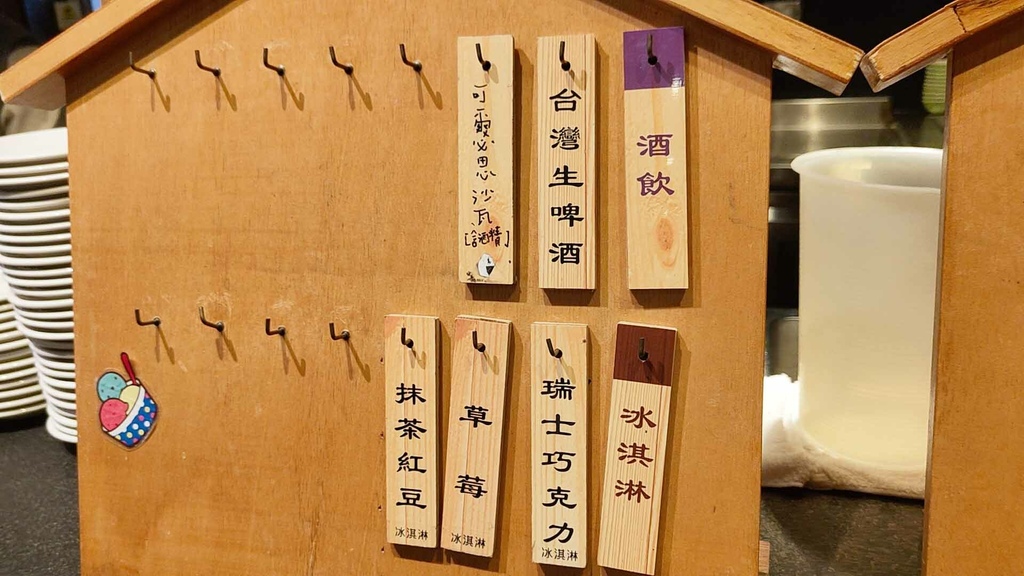 酒飲
台灣生啤酒
可爾必思沙瓦
[含酒精]
冰淇淋
瑞士巧克力
冰淇淋
草莓
冰淇淋
抹茶紅豆
冰淇淋